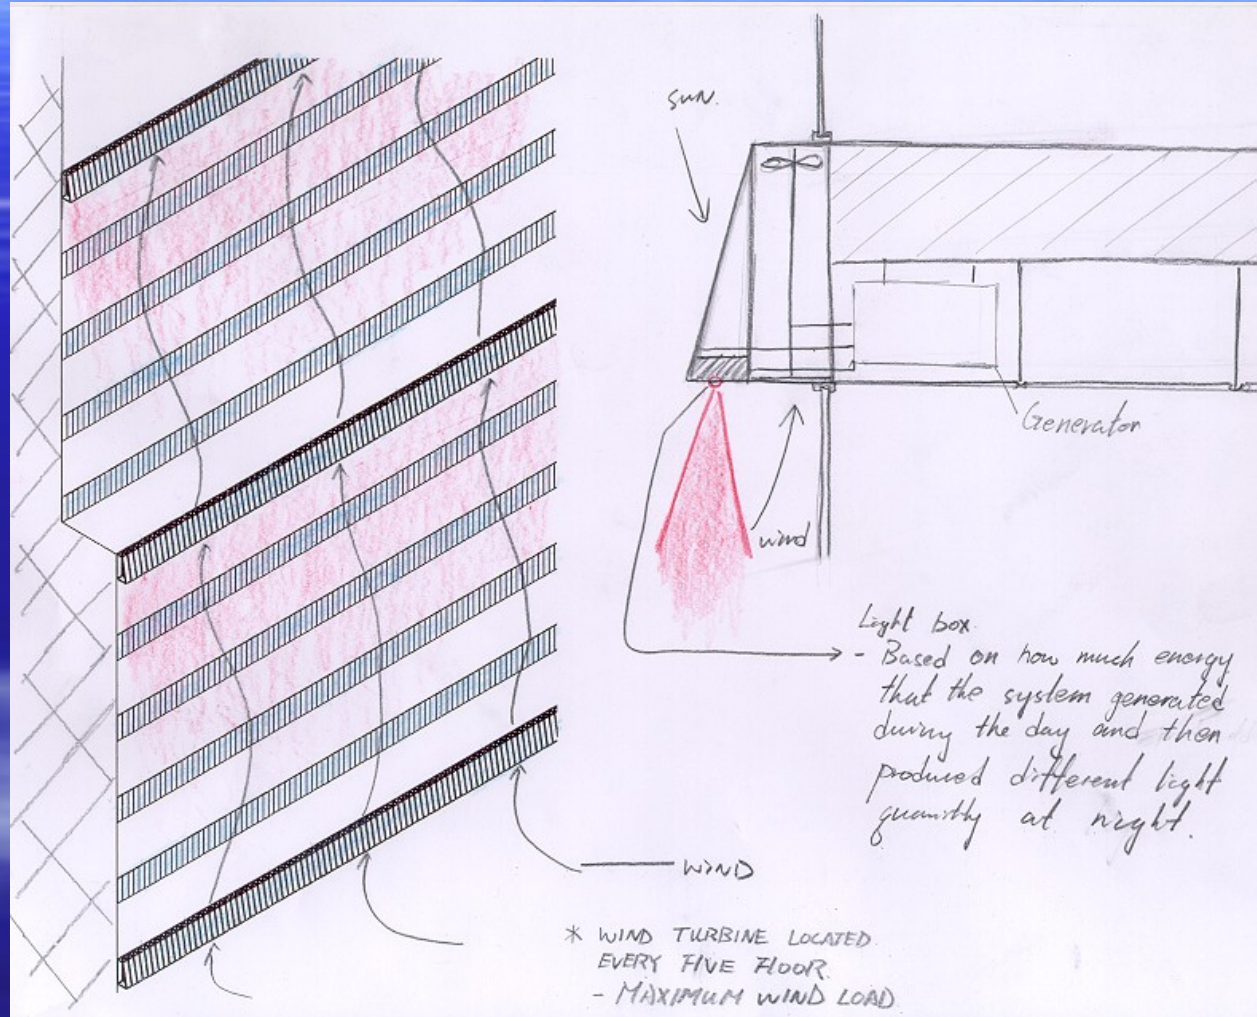 SUN.
Generator
wind
Light box.
- Based on how much energy
that the system generated
during the day and then
produced different light
quantity at night.
WIND
* WIND TURBINE LOCATED
EVERY FIVE FLOOR.
- MAXIMUM WIND LOAD